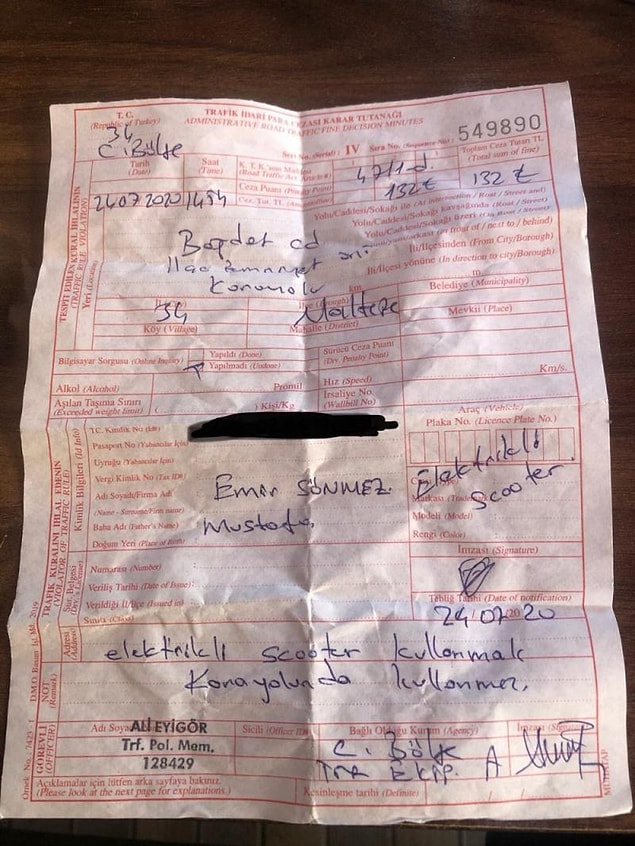 T. C.
(Republic of Turkey)
TRAFİK İDARİ PARA CEZASI KARAR TUTANAĞI
ADMINISTRATIVE ROAD TRAFFIC FINE DECISION MINUTES
34
C. Bölge
Seri No. (Serial) : IV Sıra No. (Sequence No.) 549890
Tarih
(Date)
Saat
(Time)
K. T. K.'nun Maddesi
(Road Traffic Act.
47/1-d
Toplam Ceza Tutarı TL
(Total sum of fine)
Ceza Puanı
Cez. Tut. TL
132 ₺
132 ₺
24.07.2020 14:54
TESPİT EDİLEN KURAL İHLALİNİN
(TRAFFIC RULE VIOLATION)
Yeri (Location)
Yolu/Caddesi/Sokağı ile
Yolu/Caddesi/Sokağı kavşağında
Yolu/Caddesi/Sokağı üzeri
(in front of / next to / behind)
Bağdat cd
İl/İlçesinden (From City/Borough)
İl/İlçesi yönüne (In direction to city/Borough)
km.
m.
34
Maltepe
Belediye (Municipality)
Köy (Village)
Mahalle (District)
Mevki (Place)
Bilgisayar Sorgusu (Online Inquiry)
Yapıldı (Done)
Yapılmadı (Undone)
Sürücü Ceza Puanı
(Drv. Penalty Point)
Alkol (Alcohol)
Promil
Hız (Speed)
Km/s.
Aşılan Taşıma Sınırı
(Exceeded weight limit)
( ) Kişi/Kg
İrsaliye No.
(Waybill No.)
TRAFİK KURALINI İHLAL EDENİN
(VIOLATOR OF TRAFFIC RULE)
Kimlik Bilgileri (Id Info)
T.C. Kimlik No (Id#)
Pasaport No (Yabancılar İçin)
Uyruğu (Yabancılar İçin)
Vergi Kimlik No (Tax ID#)
Adı Soyadı/Firma Adı
(Name - Surname/Firm name)
Emir SÖNMEZ
Baba Adı (Father's Name)
Mustafa
Doğum Yeri (Place of Birth)
Araç (Vehicle)
Plaka No. (Licence Plate No.)
Elektrikli
Scooter
Markası (Trademark)
Modeli (Model)
Rengi (Color)
İmzası (Signature)
Sür. Belgesi
(Drv.'s License)
Numarası (Number)
Veriliş Tarihi (Date of Issue)
Verildiği İl/İlçe (Issued in)
Sınıfı (Class)
Tebliğ Tarihi (Date of notification)
24/07/2020
Adresi
(Address)
NOT
(Remark)
elektrikli scooter kullanmak
Karayolunda kullanmez.
GÖREVLİ
(OFFICER)
Adı Soyadı
ALİ EYİGÖR
Trf. Pol. Mem.
128429
Sicili (Officer ID#)
Bağlı Olduğu Kurum (Agency)
C. Bölge
Trf EKİP. A
Açıklamalar için lütfen arka sayfaya bakınız.
(Please look at the next page for explanations.)
Kesinleşme tarihi (Definite)
MUHATAP